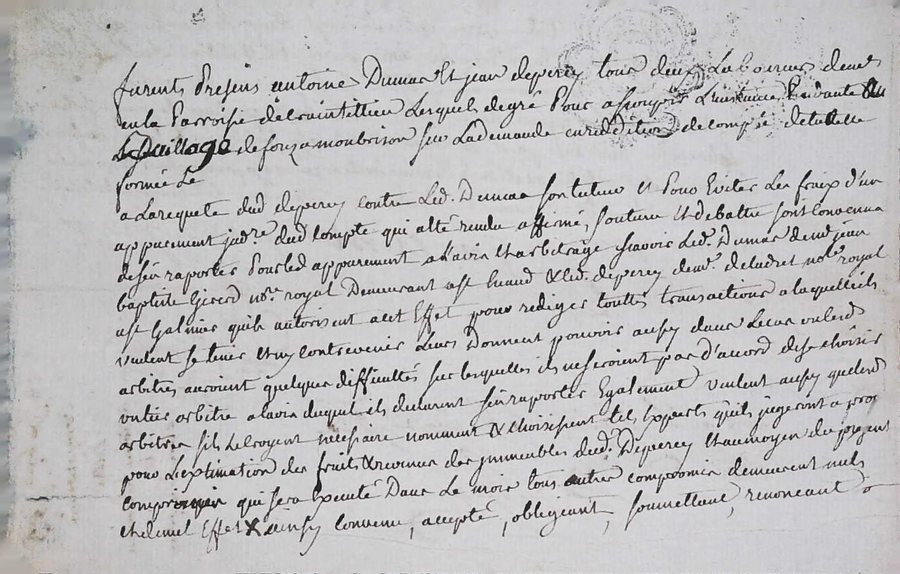 furent presens antoine Dumas et jean deperey tous deux Laboureurs demt
en la Parroisse de saint ettien Lesquels de gré Pour assoupir L'instance Pendante au
Bailliage de forez a monbrison sur La demande en reddition de compte detutelle
formée Le
a La requete dud deperey contre Led. Dumas son tuteur et Pour Eviter Les fraix d'un
appurement judre. dud compte qui a été rendu affirmé, soutenu et debattu sont convenus
de s'en raporter Pour led appurement a l'avis et arbitrage scavoir Led. Dumas de me jean
baptiste Girard nore. royal Demeurant a st heand & led. deperey de me. deladret nore. royal
a st Galmier qu'ils autorisent a cet Effet pour rediger touttes transactions a laquelle ils
veulent se tenir et ny contrevenir Leurs Donnent pouvoir aussy dans Le cas ou lesd
arbitres auroient quelques difficultés sur lesquelles ils ne seroient pas d'accord de se choisir
un tiers arbitre a l'avis duquel ils declarent s'en raporter Egalement veulent aussy que lesd
arbitres s'ils Le croyent necessaire nomment & choisissent tels Experts qu'ils jugeront a propos
pour L'extimation des fruits & revenus des jmmeubles dud. Deperey et au moyen du present
compromis qui sera Executé Dans Le mois tous autres compromis demeurent nuls
et de nul Effet X ainsy convenu, accepté, obligeant, soumettant, renonceant